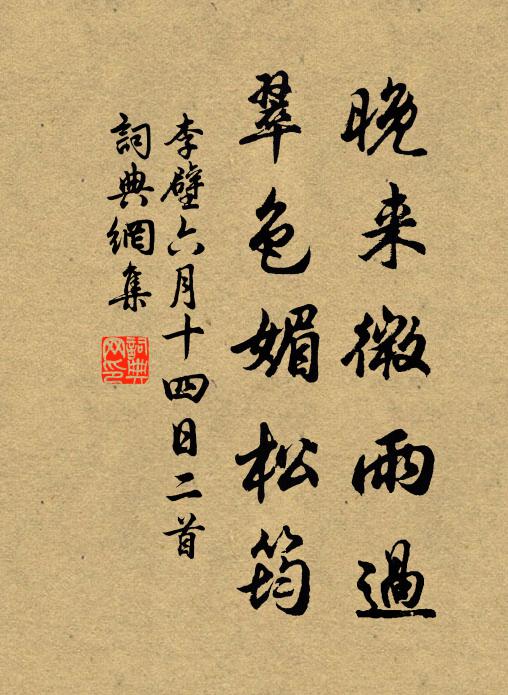 晚来微雨過
翠色媚松筠
李壁六月十四日二首
詞典網集
詞典网印